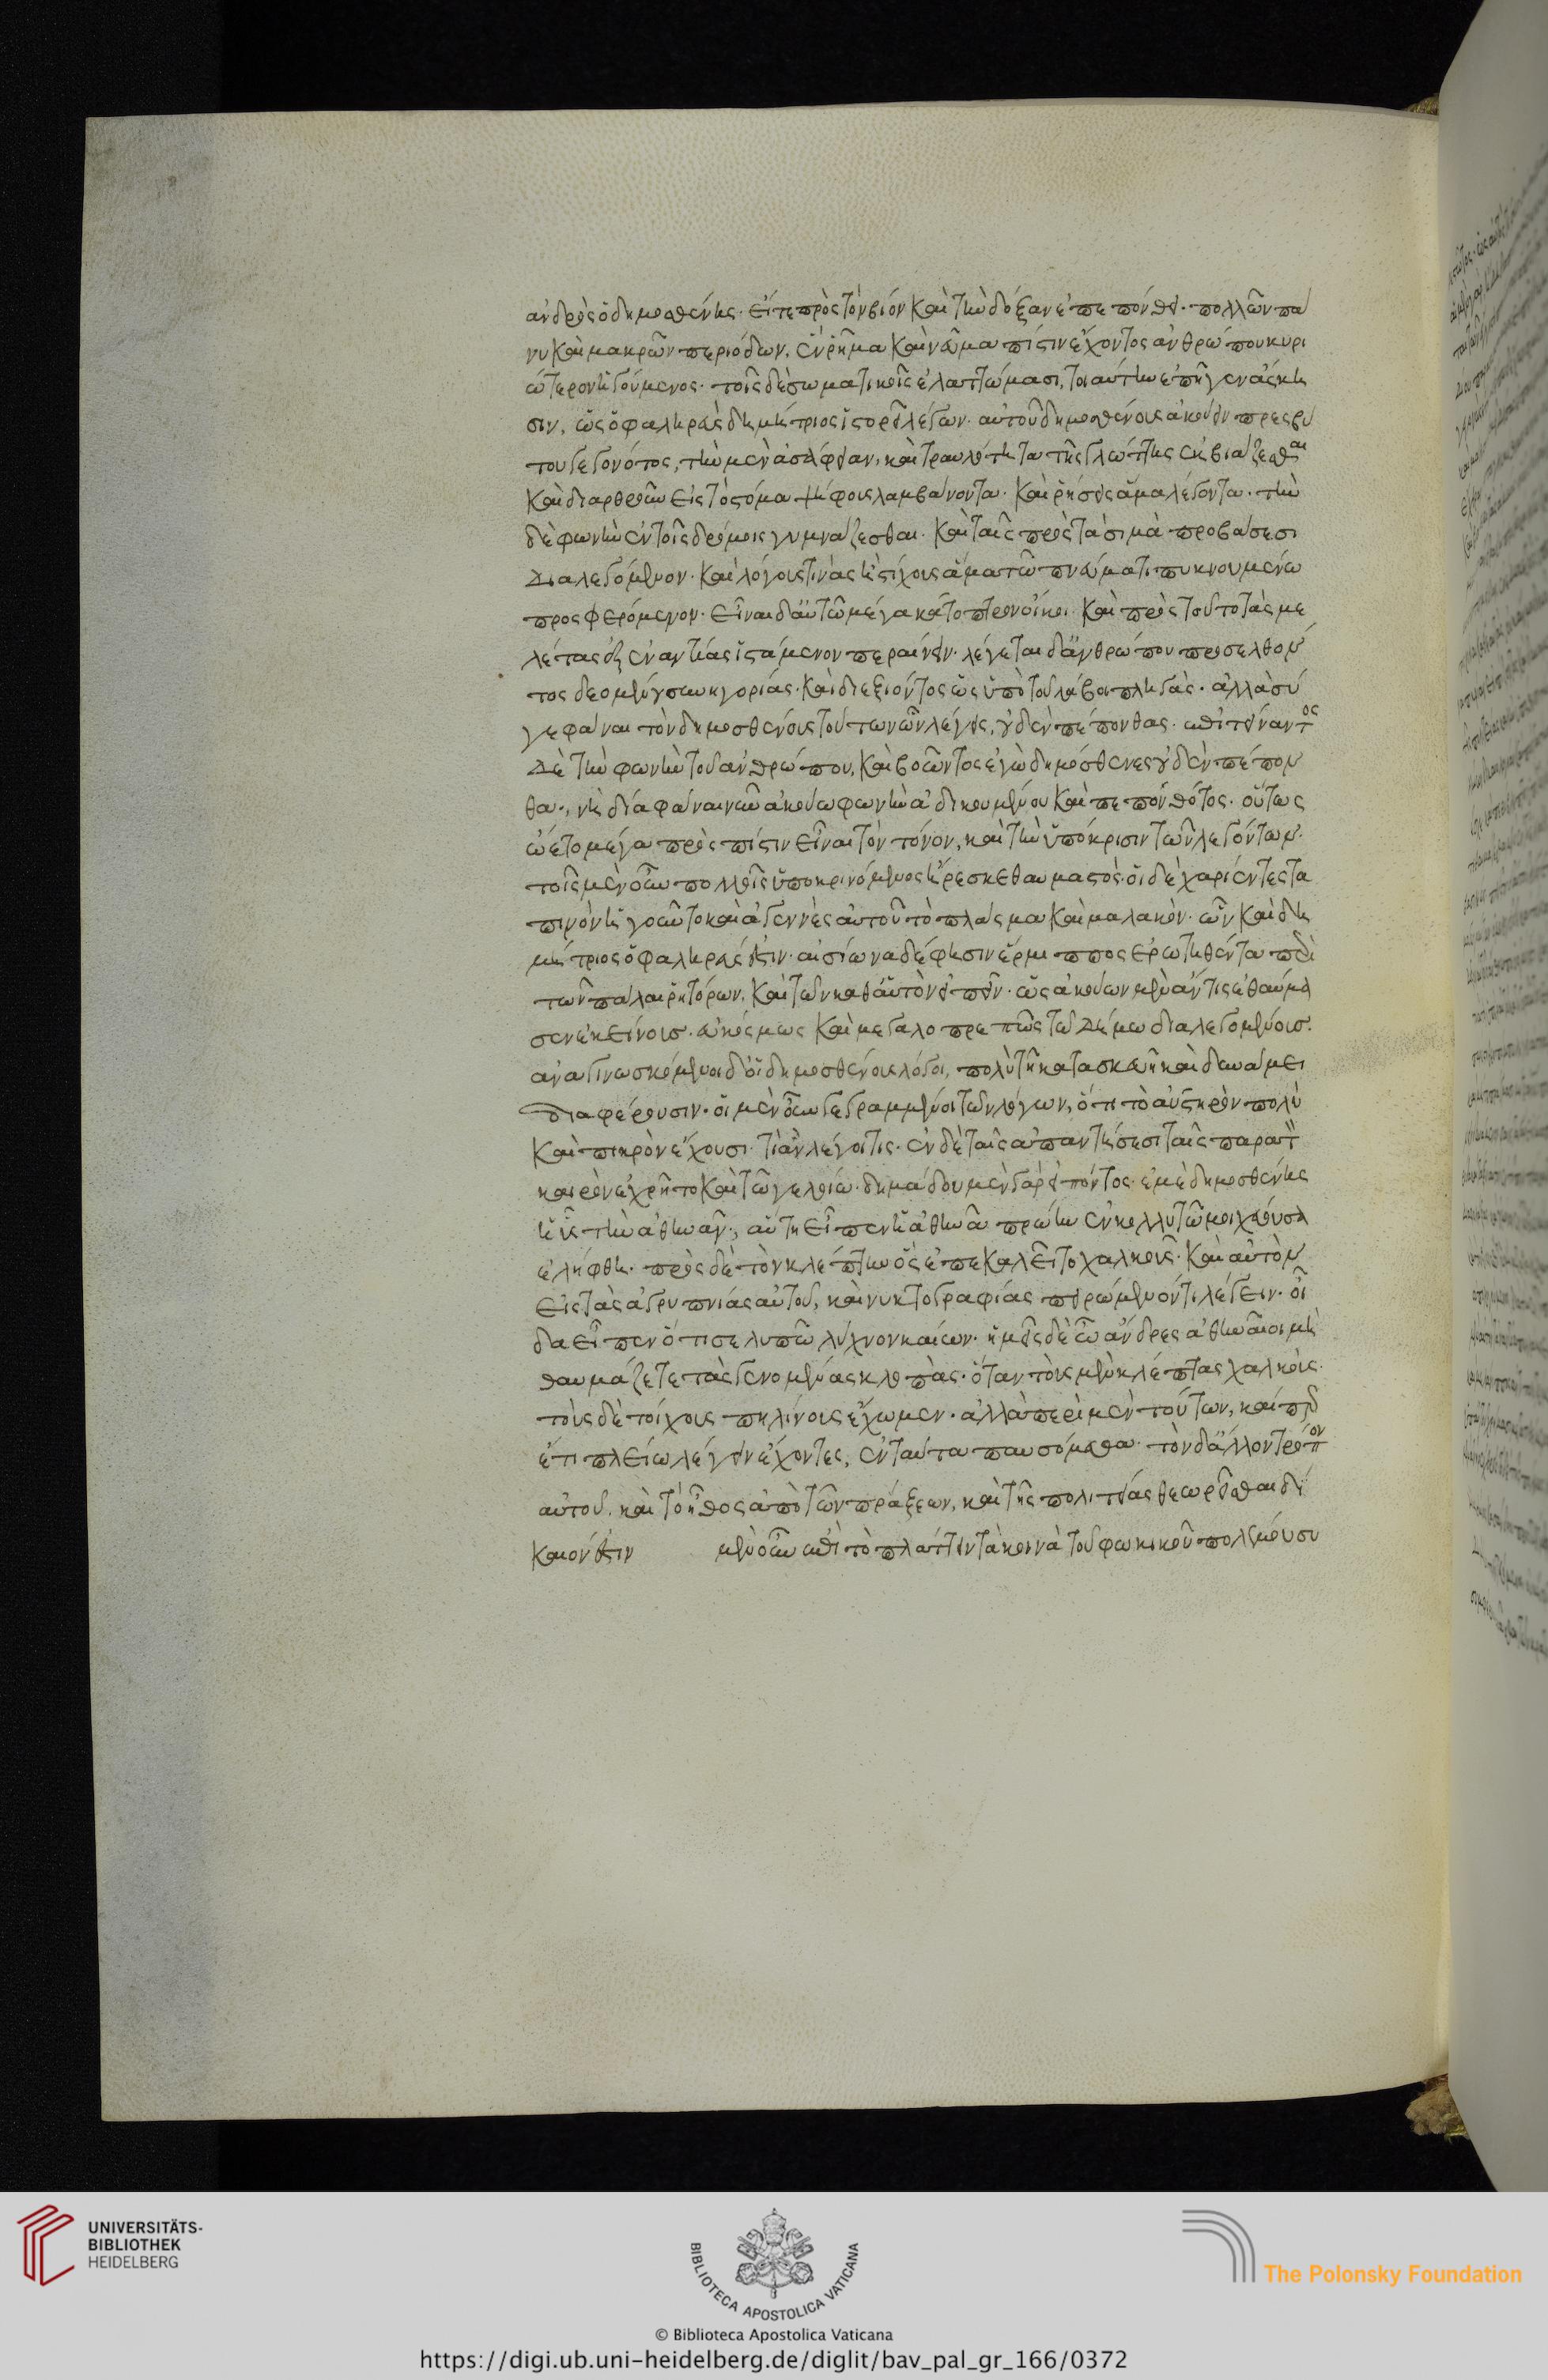 ἀνδρὸς ὁ δημοσθένης. εἴτε πρὸς τὸν βίον καὶ τὴν δόξαν ἐπεπόνθει. πολλῶν πά
νυ καὶ μακρῶν περιόδων, ἓν ῥῆμα καὶ νεῦμα πίστιν ἔχοντος ἀνθρώπου κυρι
ώτερον ἡγούμενος. τοῖς δὲ σωματικοῖς ἐλαττώμασι, τοιαύτην ἐπῆγεν ἄσκη
σιν, ὡς ὁ φαληρεὺς δημήτριος ἱστορεῖ λέγων. αὐτοῦ δημοσθένους ἀκούειν πρεσβύ
του γεγονότος, τὴν μὲν ἀσάφειαν, καὶ τραυλότητα τῆς γλώττης ἐκβιάζεσθαι
καὶ διαρθροῦν εἰς τὸ στόμα ψήφους λαμβάνοντα. καὶ ῥήσεις ἅμα λέγοντα. τὴν
δὲ φωνὴν ἐν τοῖς δρόμοις γυμνάζεσθαι. καὶ ταῖς πρὸς τὰ σιμὰ προβάσεσι
διαλεγόμενον. καὶ λόγους τινὰς ἢ στίχους ἅμα τῶ πνεύματι πυκνουμένω
προσφερόμενον. εἶναι δ' αὐτῶ μέγα κάτοπτρον οἴκοι. καὶ πρὸς τοῦτο τὰς με
λέτας ἐξ ἐναντίας ἱστάμενον περαίνειν. λέγεται δ' ἀνθρώπου προσελθόν
τος δεομένου συνηγορίας. καὶ διεξιόντος ὡς ὑπό του λάβοι πληγάς. ἀλλὰ σύ
γε φάναι τὸν δημοσθένους τούτων ὧν λέγεις, οὐδὲν πέπονθας. ἐπιτείναντος
δὲ τὴν φωνὴν τοῦ ἀνθρώπου, καὶ βοῶντος ἐγὼ δημόσθενες οὐδὲν πέπον
θα, νὴ δία φάναι νῦν ἀκούω φωνὴν ἀδικουμένου καὶ πεπονθότος. οὕτως
ὤετο μέγα πρὸς πίστιν εἶναι τὸν τόνον, καὶ τὴν ὑπόκρισιν τῶν λεγόντων.
τοῖς μὲν οὖν πολλοῖς ὑποκρινόμενος ἤρεσκε θαυμαστὸς. οἱ δὲ χαρίεντες τα
πινὸν ἡγοῦντο καὶ ἀγεννὲς αὐτοῦ τὸ πλάσμα καὶ μαλακὸν. ὧν καὶ δη
μήτριος ὁ φαληρεύς ἐστιν. αἰσίωνα δέ φησιν ἕρμιππος ἐρωτηθέντα περὶ
τῶν πάλαι ῥητόρων, καὶ τῶν καθ' αὑτὸν εἰπεῖν. ὡς ἀκούων μὲν ἄν τις ἐθαύμα
σεν ἐκείνους. εὐκόσμως καὶ μεγαλοπρεπῶς τῶ δήμω διαλεγομένους.
ἀναγινωσκόμενοι δ' οἱ δημοσθένους λόγοι, πολὺ τῆ κατασκευῆ καὶ δυνάμει
διαφέρουσιν. οἱ μὲν οὖν γεγραμμένοι τῶν λόγων, ὅτι τὸ αὐστηρὸν πολὺ
καὶ πικρὸν ἔχουσι. τί ἂν λέγοι τις. ἐν δὲ ταῖς ἀπαντήσεσι ταῖς παρὰ τὸν
καιρὸν ἐχρῆτο καὶ τῶ γελοίω. δημάδου μὲν γὰρ εἰπόντος. ἐμὲ δημοσθένης
ἡ ὗς τὴν ἀθηνᾶν, αὕτη εἶπεν ἡ ἀθηνᾶ πρώην ἐν κολλυτῶ μοιχεύουσα
ἐλήφθη. πρὸς δὲ τὸν κλέπτην ὃς ἐπεκαλεῖτο χαλκοῦς. καὶ αὐτὸν
εἰς τὰς ἀγρυπνίας αὐτοῦ, καὶ νυκτογραφίας πειρώμενόν τι λέγειν. οἶ
δα εἶπεν ὅτι σε λυπῶ λύχνον καίων. ὑμεῖς δὲ ὦ ἄνδρες ἀθηναῖοι μὴ
θαυμάζετε τὰς γενομένας κλοπὰς. ὅταν τοὺς μὲν κλέπτας χαλκοῦς.
τοὺς δὲ τοίχους πηλίνους ἔχωμεν. ἀλλὰ περὶ μὲν τούτων, καίπερ
ἔτι πλείω λέγειν ἔχοντες, ἐνταῦθα παυσόμεθα. τὸν δ' ἄλλον τρόπον
αὐτοῦ. καὶ τὸ ἦθος ἀπὸ τῶν πράξεων, καὶ τῆς πολιτείας θεωρεῖσθαι δί
καιόν ἐστιν μὲν οὖν ἐπὶ τὸ πράττειν τὰ κοινὰ τοῦ φωκικοῦ πολέμου συ
UNIVERSITÄTS-
BIBLIOTHEK
HEIDELBERG
BIBLIOTECA APOSTOLICA VATICANA
© Biblioteca Apostolica Vaticana
The Polonsky Foundation
https://digi.ub.uni-heidelberg.de/diglit/bav_pal_gr_166/0372